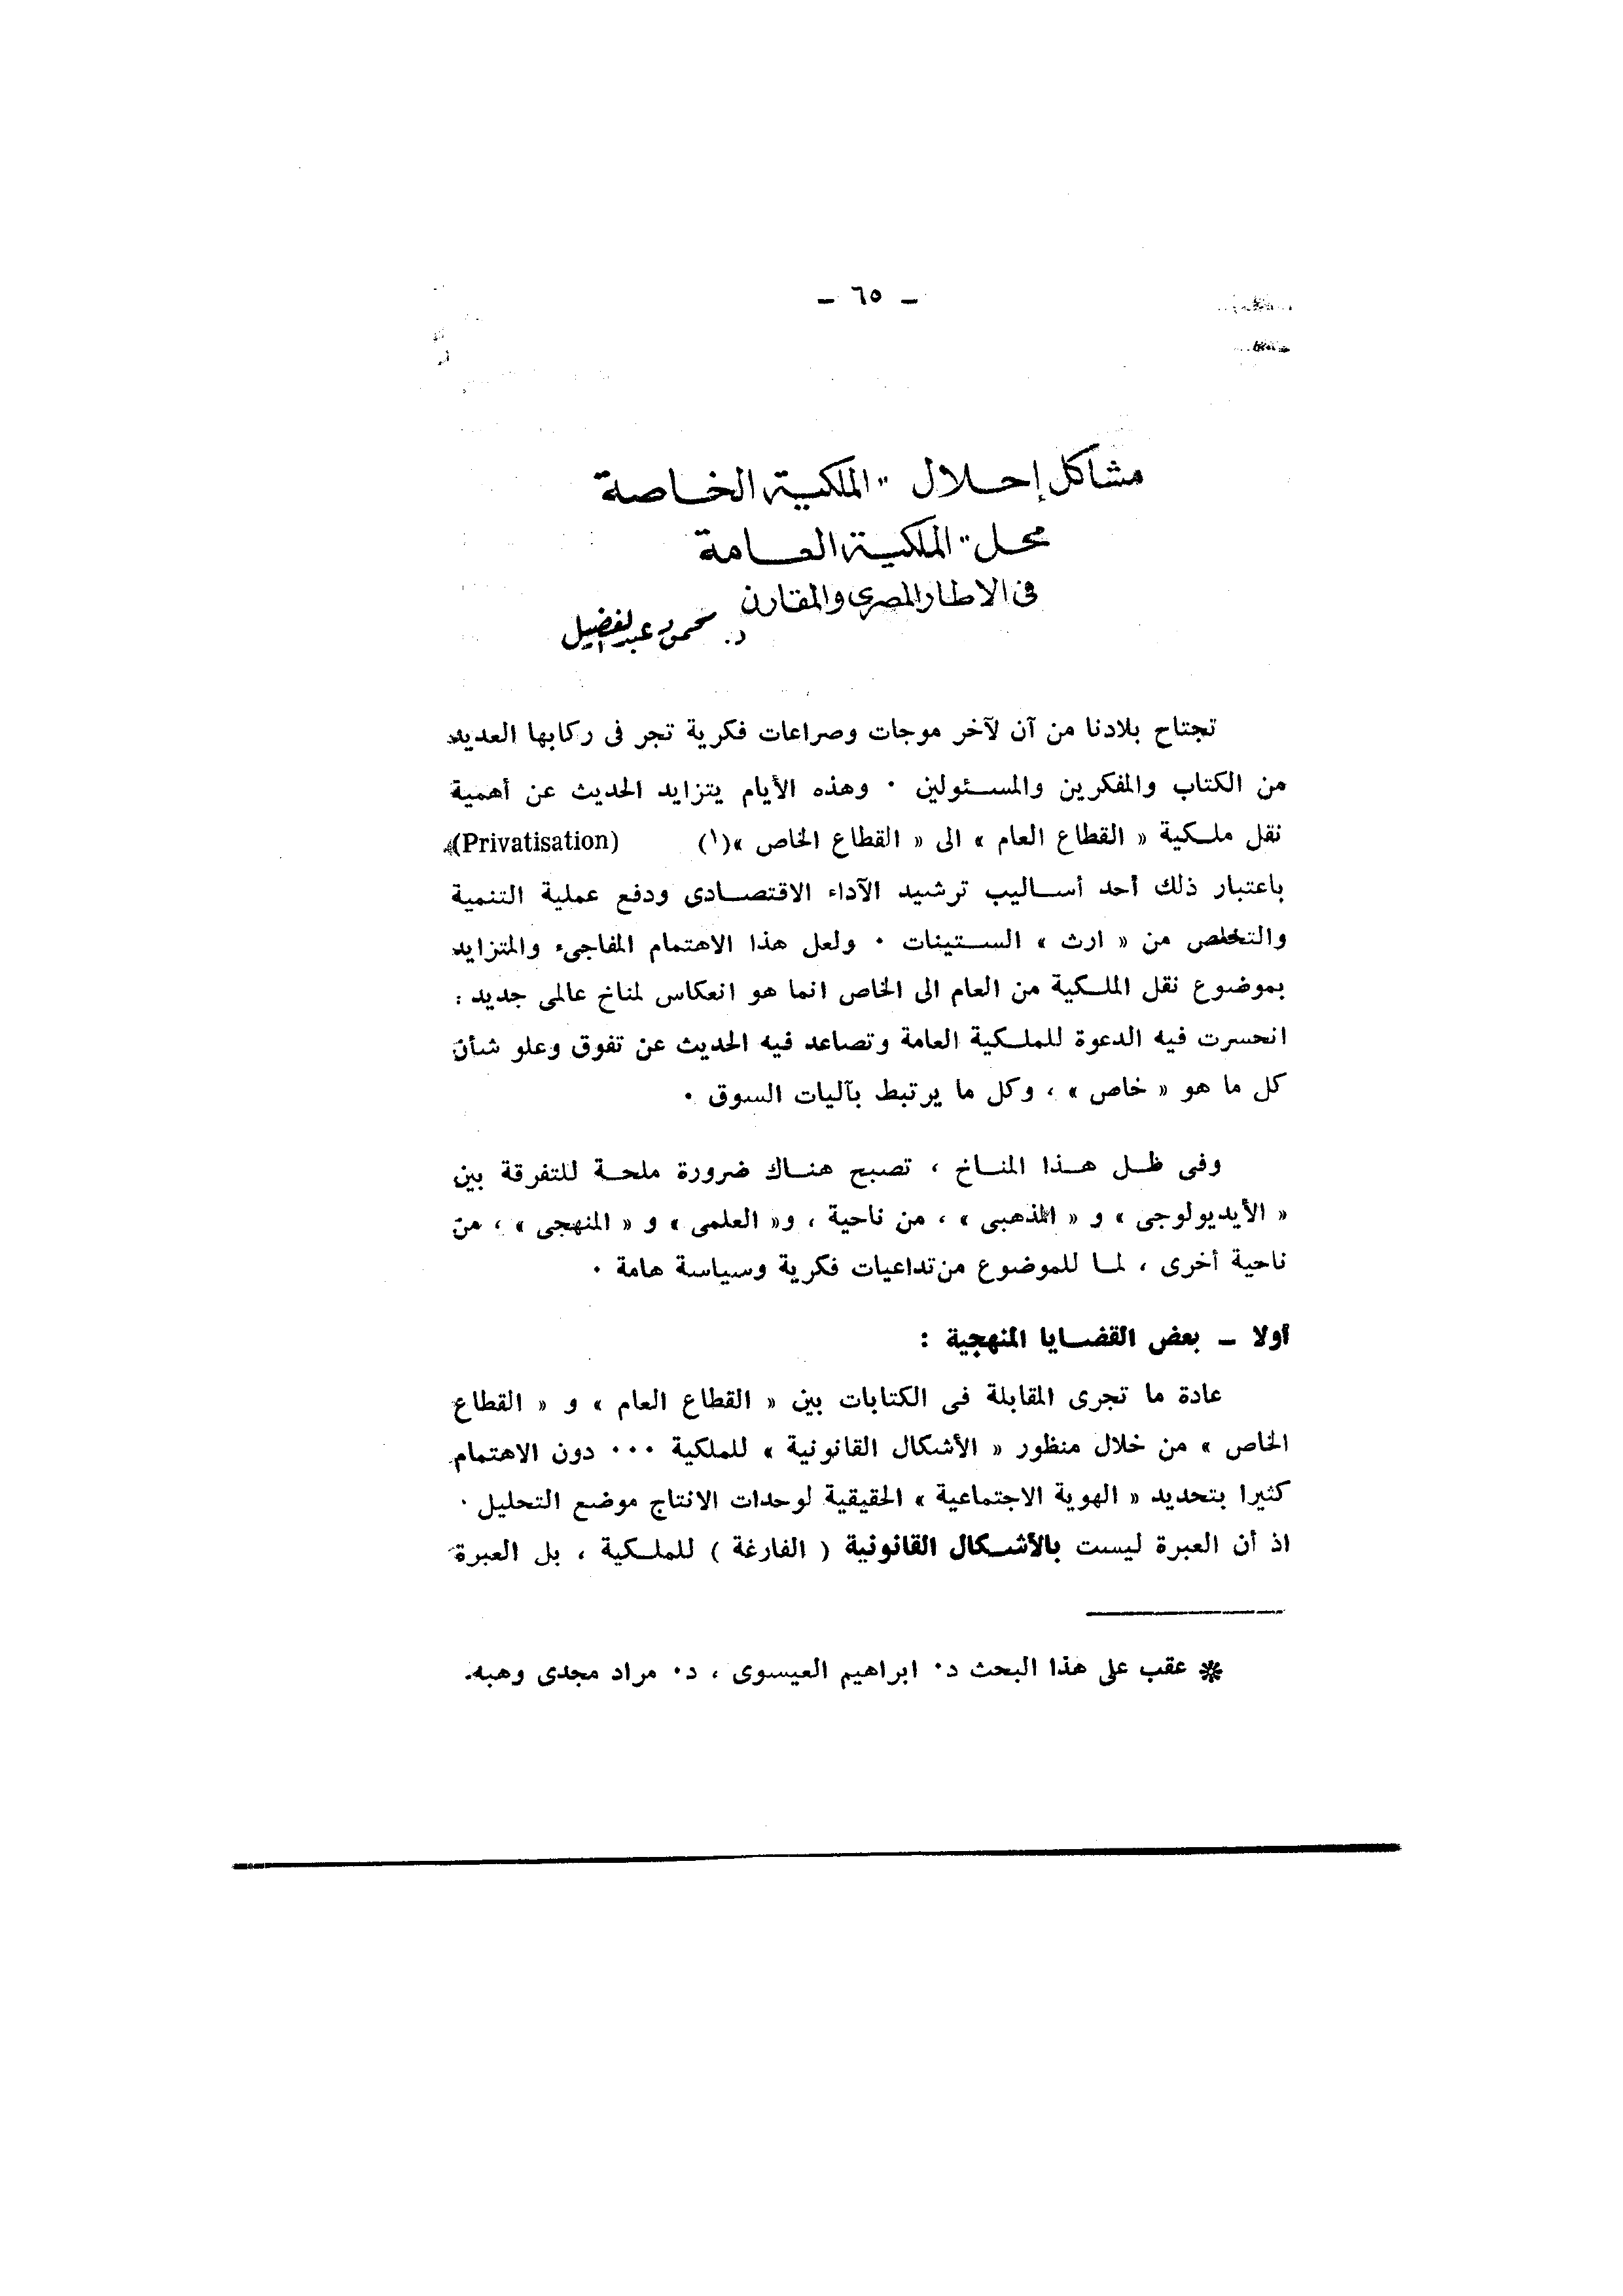 – ٦٥ –
مشاكل إحلال "الملكية الخاصة
محل "الملكية العامة
فى الاطار المصرى والمقارن
د. محمود عبدالفضيل
تجتاح بلادنا من آن لآخر موجات وصراعات فكرية تجر فى ركابها العديد
من الكتاب والمفكرين والمسئولين ٠ وهذه الأيام يتزايد الحديث عن أهمية
نقل ملكية « القطاع العام » الى « القطاع الخاص »(١) (Privatisation)
باعتبار ذلك أحد أساليب ترشيد الآداء الاقتصادى ودفع عملية التنمية
والتخلص من « ارث » الستينات ٠ ولعل هذا الاهتمام المفاجىء والمتزايد
بموضوع نقل الملكية من العام الى الخاص انما هو انعكاس لمناخ عالمى جديد :
انحسرت فيه الدعوة للملكية العامة وتصاعد فيه الحديث عن تفوق وعلو شأن
كل ما هو « خاص » ، وكل ما يرتبط بآليات السوق ٠
وفى ظل هذا المناخ ، تصبح هناك ضرورة ملحة للتفرقة بين
« الأيديولوجى » و « المذهبى » ، من ناحية ، و« العلمى » و « المنهجى » ، من
ناحية أخرى ، لما للموضوع من تداعيات فكرية وسياسة هامة ٠
أولا – بعض القضايا المنهجية :
عادة ما تجرى المقابلة فى الكتابات بين « القطاع العام » و « القطاع
الخاص » من خلال منظور « الأشكال القانونية » للملكية ٠٠٠ دون الاهتمام
كثيرا بتحديد « الهوية الاجتماعية » الحقيقية لوحدات الانتاج موضع التحليل ٠
اذ أن العبرة ليست بالأشكال القانونية ( الفارغة ) للملكية ، بل العبرة
※ عقب على هذا البحث د٠ ابراهيم العيسوى ، د٠ مراد مجدى وهبه.